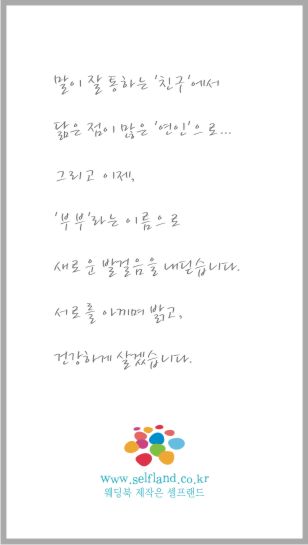 말이 잘 통하는 '친구'에서
닮은 점이 많은 '연인'으로...
그리고 이제,
'부부'라는 이름으로
새로운 발걸음을 내딛습니다.
서로를 아끼며 밝고,
건강하게 살겠습니다.
www.selfland.co.kr
웨딩북 제작은 셀프랜드